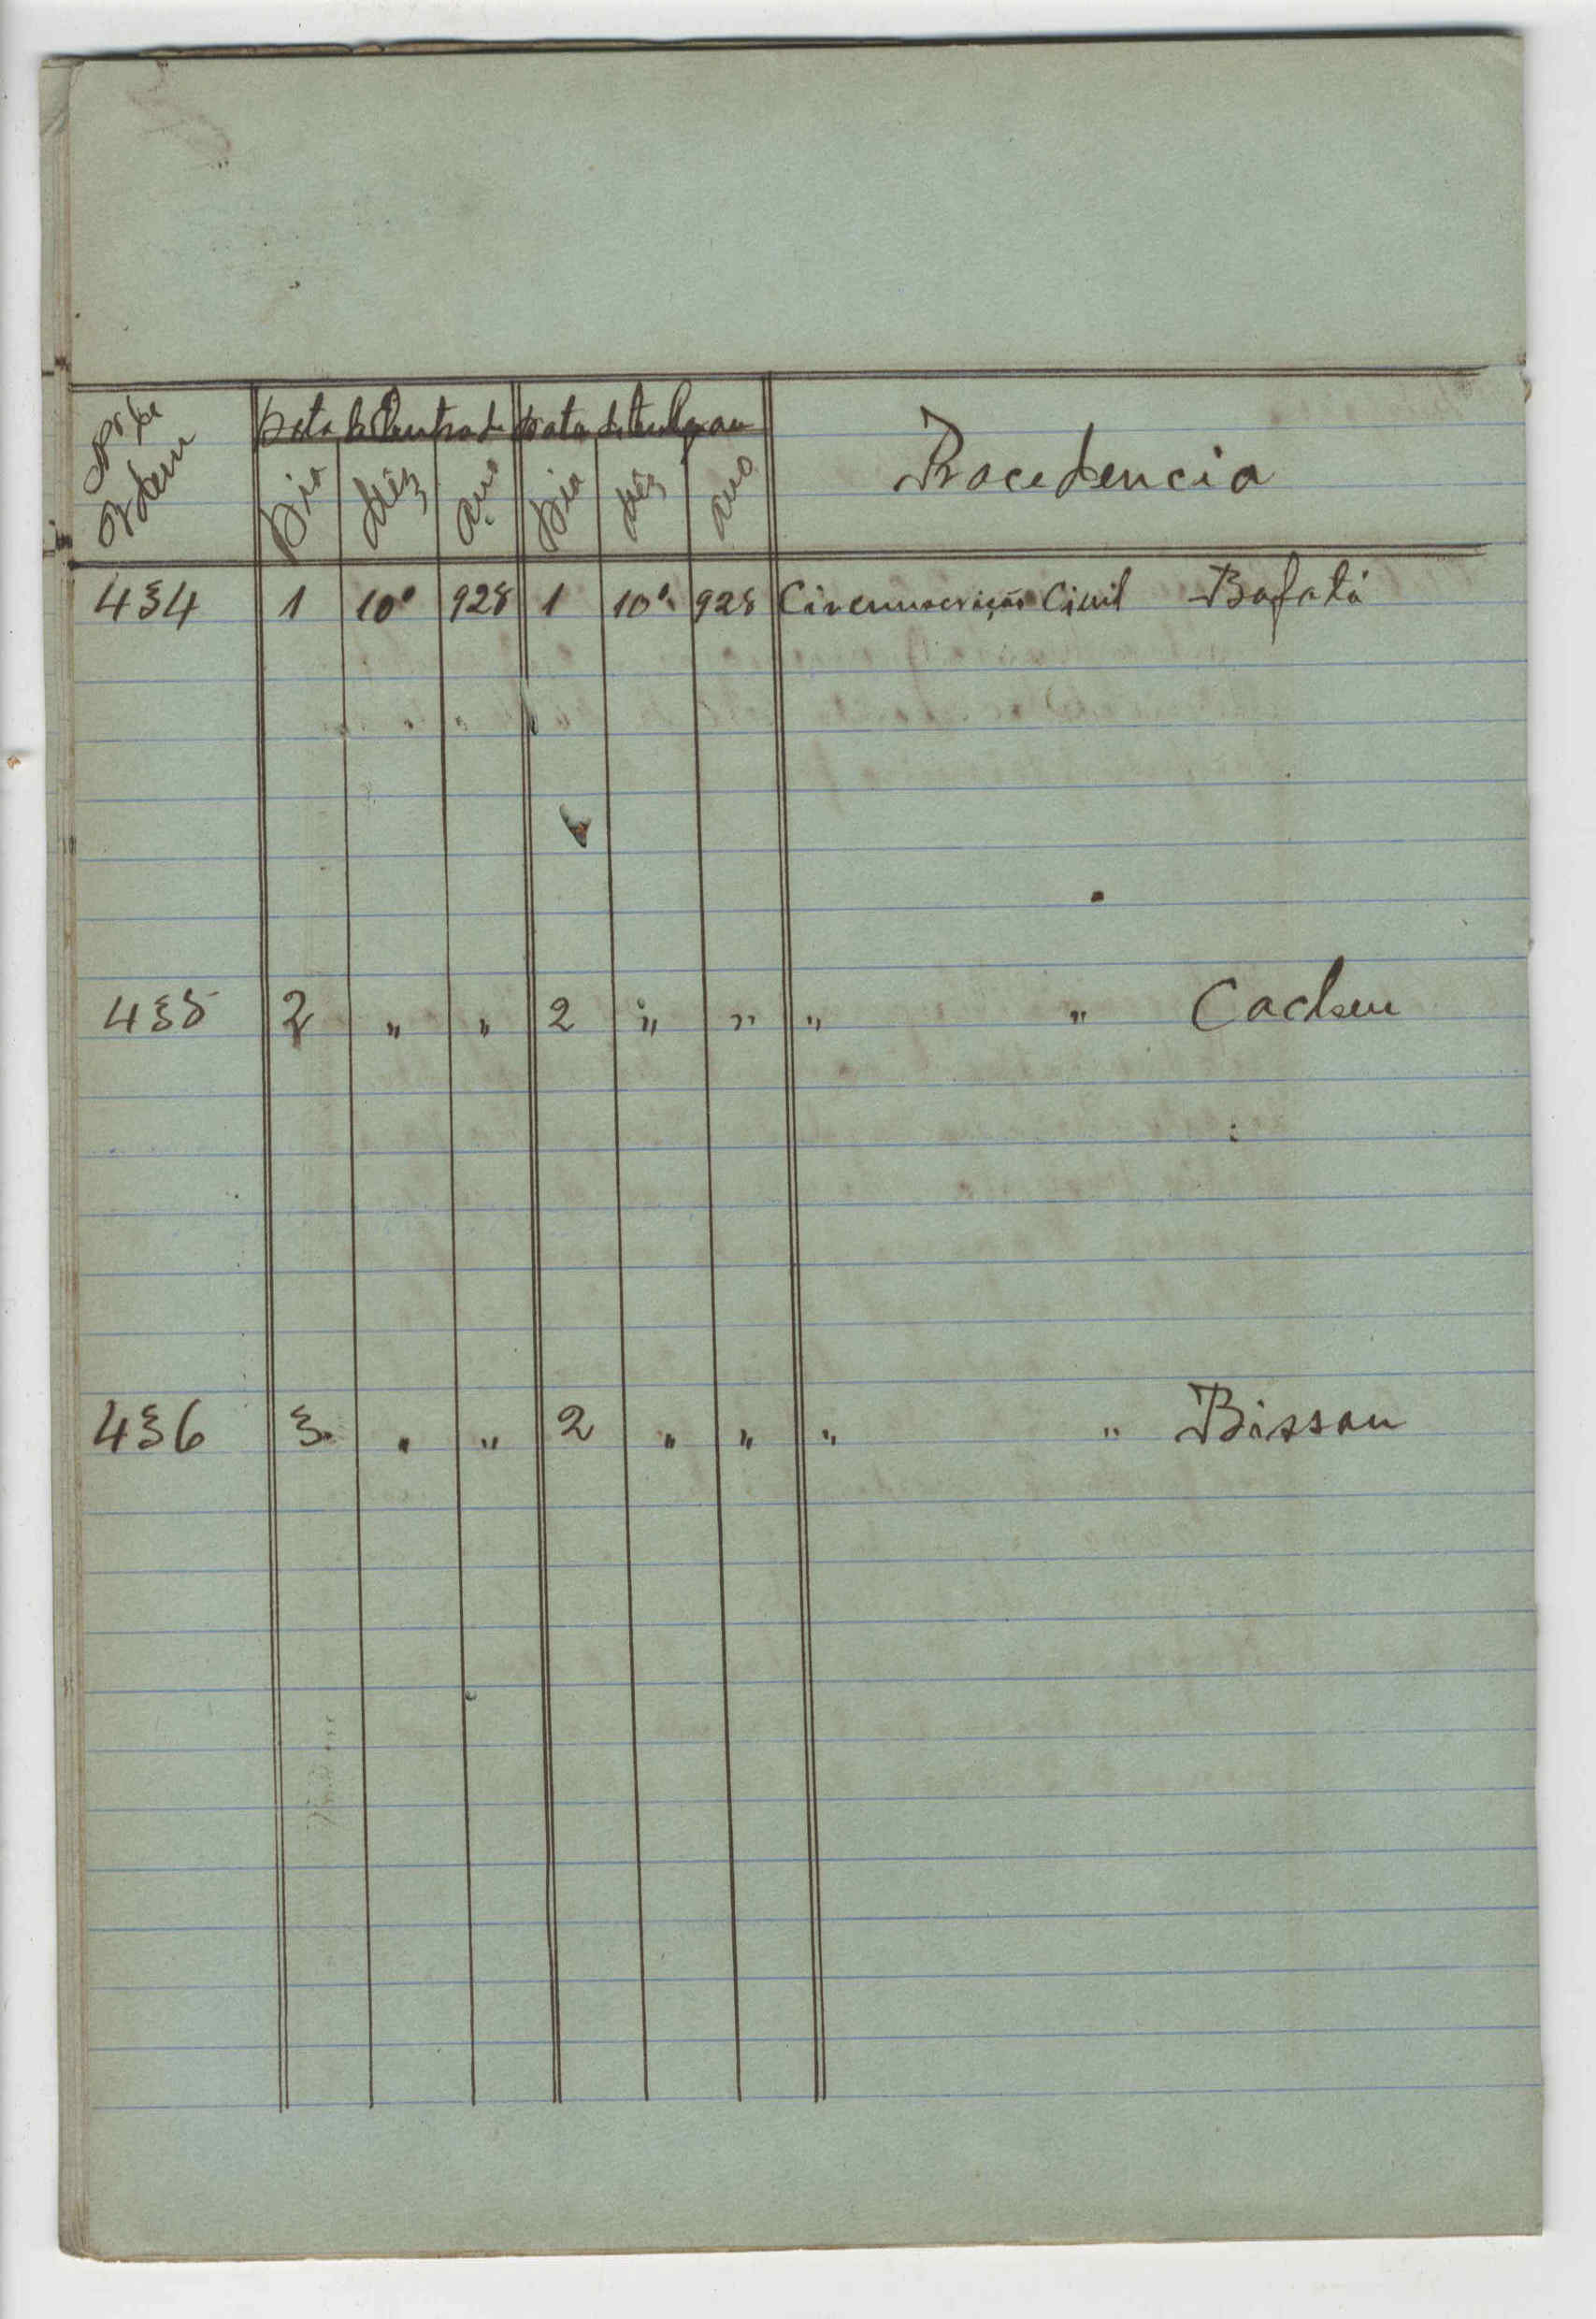 Nº de Ordem
Data de Entrada Data de
Dia Mêz Ano Dia Mêz Ano Procedencia
434 1 10º 928 1 10º 928 Circunscrição Civil Bafatá
435 2 " " 2 " " " " Cacheu
436 3 " " 2 " " " " Bissau